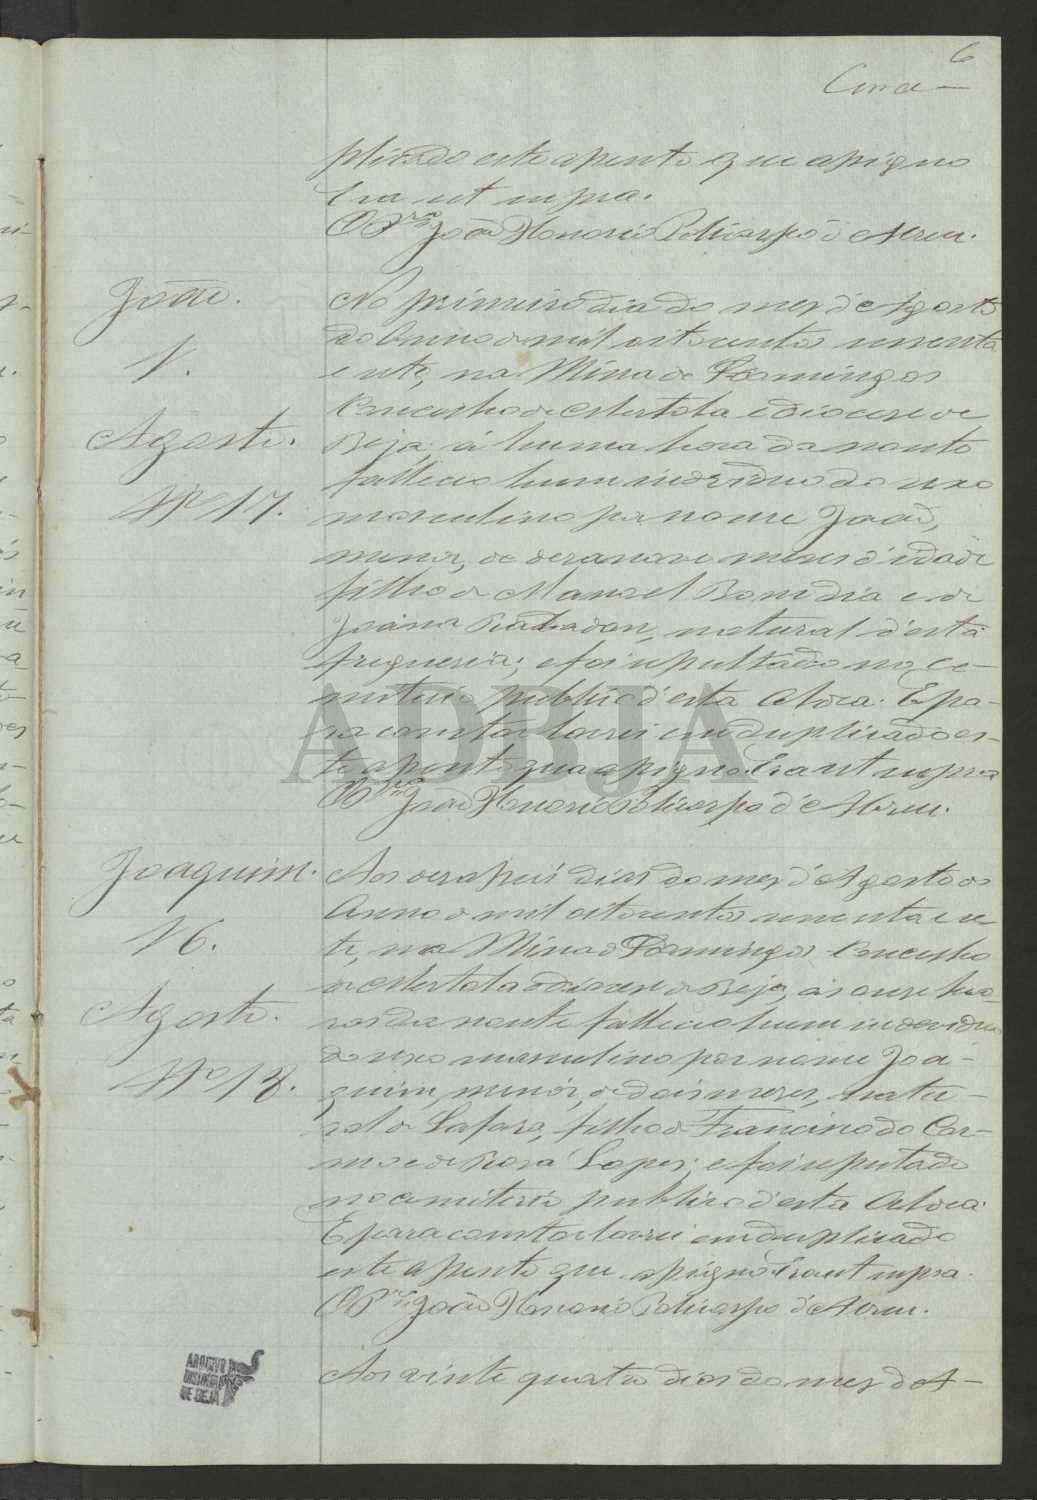 6
plicado este assento que assigno
Era ut supra.
O P.e João Honorio Policarpo d'Abreu.
João.
N.
Agosto.
Nº 17.
No primeiro dia do mez d'Agosto
do Anno de mil oitocentos noventa
e sete, na Mina de S. Domingos
Concelho de Mertola e diocese de
Beja, á huma hora da noute
falleceo hum individuo do sexo
masculino por nome João,
menor, de desanove mezes d'idade
filho de Manoel Bomdia e de
Joana, natural d'esta
freguesia; e foi sepultado no ce-
miterio publico d'esta Aldea. E pa-
ra constar lavrei em duplicado es-
te assento que assigno. Era ut supra
O P.e João Honorio Policarpo d'Abreu.
Joaquim.
N6.
Agosto.
Nº 18.
Aos deraseis dias do mez d'Agosto do
Anno de mil oitocentos noventa e se-
te, na Mina de S. Domingos, Concelho
de Mertola e diocese de Beja, ás onze ho-
ras da noute falleceo hum individuo
do sexo masculino por nome Joa-
quim, menór, de dois mezes, natu-
ral de Safara, filho de Francisco do Car-
mo e de Rosa Lopes; e foi sepultado
no cemiterio publico d'esta Aldea.
E para constar lavrei em duplicado
este assento que assigno. Era ut supra.
O P.e João Honorio Policarpo d'Abreu.
Aos vinte quatro dias do mez de A-
ADBJA
ARQUIVO
DISTRITAL
DE BEJA